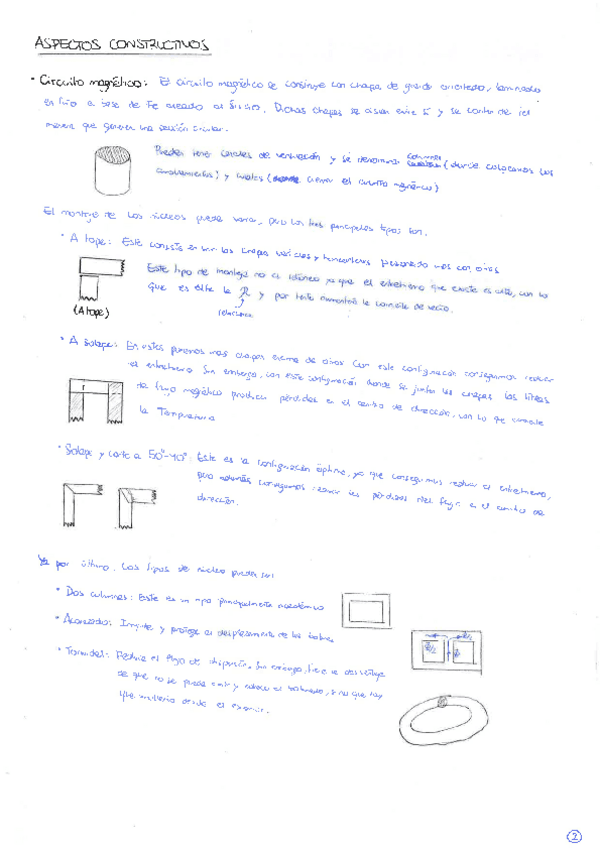 ASPECTOS CONSTRUCTIVOS
• Circuito magnético: El circuito magnético se construye con chapas de grano orientado, laminadas
en frío a base de Fe aleado al Silicio. Dichas chapas se aislan entre sí y se cortan de tal
manera que generen una sección circular.
Pueden tener canales de ventilación y se denominan columnas (donde colocamos los
devanamientos) y culatas (donde cierran el circuito magnético)
El montaje de los núcleos puede variar, pero los tres principales tipos son:
• A tope: Este consiste en unir las chapas verticales y horizontales unas con otras
Este tipo de montaje no es idóneo ya que el entrehierro que existe es alto, con lo
que es alta la R y por tanto aumentará la corriente de vacío.
(A tope)
reluctancia
• A solape: En estos ponemos unas chapas encima de otras. Con esta configuración conseguimos reducir
el entrehierro. Sin embargo, con esta configuración donde se juntan las chapas las líneas
de flujo magnético producen pérdidas en el cambio de dirección, con lo que aumenta
la Temperatura
• Solape y corte a 50°-40°: Esta es la configuración óptima, ya que conseguimos reducir el entrehierro,
pero además conseguimos reducir las pérdidas del flujo en el cambio de
dirección.
por último, los tipos de núcleo pueden ser:
• Dos columnas: Este es un tipo principalmente
• Acorazado: Impide y protege el desplazamiento de las bobinas
• Toroidal: Reduce el flujo de dispersión. Sin embargo, tiene la desventaja
de que no se puede abrir y colocar el bobinado, sino que hay
que desde el exterior.
2